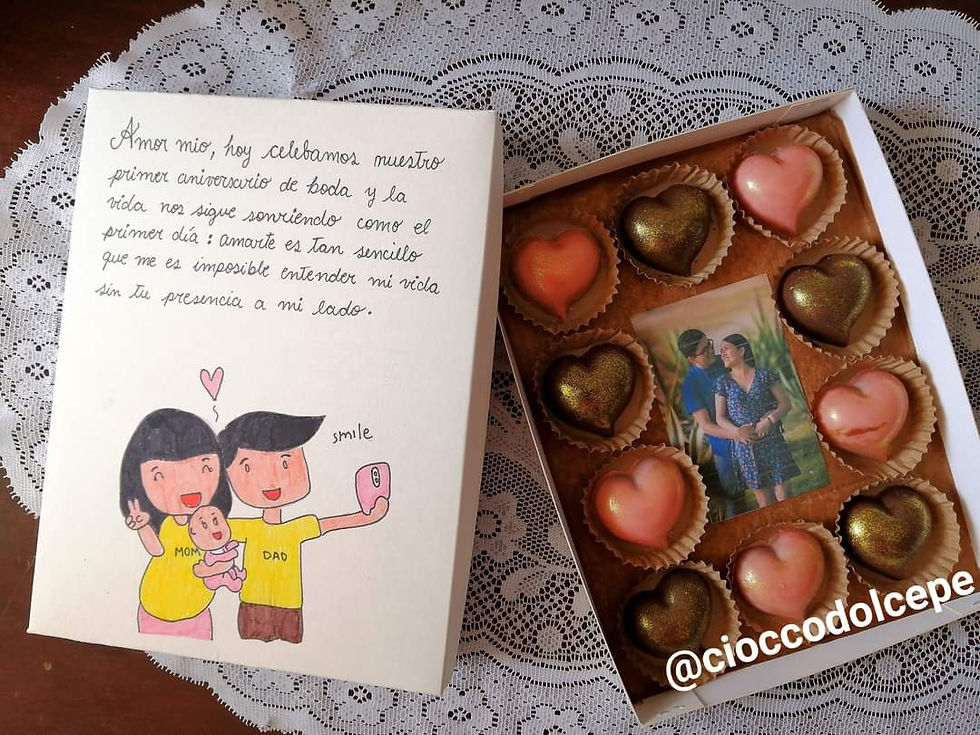 Amor mio, hoy celebamos nuestro
primer aniversario de boda y la
vida nos sigue sonriendo como el
primer día : amarte es tan sencillo
que me es imposible entender mi vida
sin tu presencia a mi lado.
smile
MOM
DAD
@cioccodolcepe